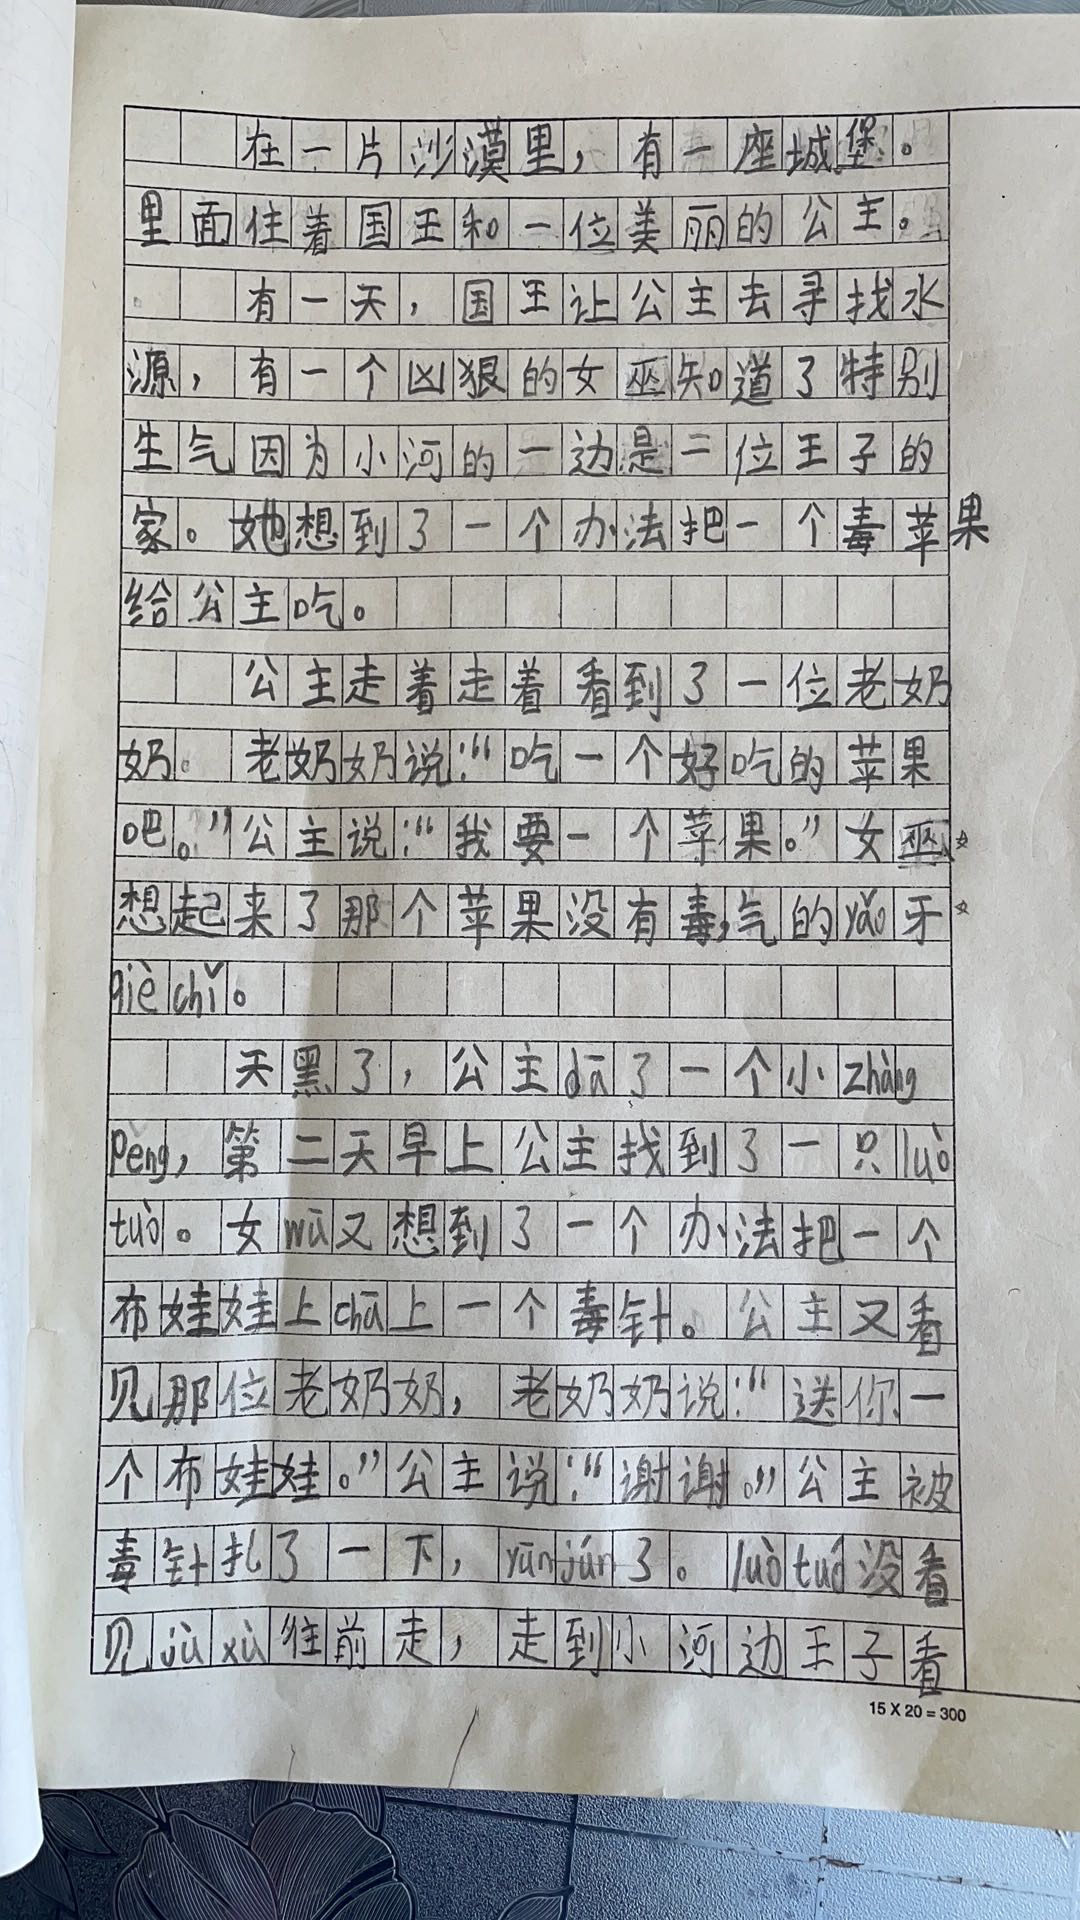 在一片沙漠里，有一座城堡。
里面住着国王和一位美丽的公主。
有一天，国王让公主去寻找水
源，有一个凶狠的女巫知道了特别
生气因为小河的一边是一位王子的
家。她想到了一个办法把一个毒苹果
给公主吃。
公主走着走着看到了一位老奶
奶。老奶奶说：“吃一个好吃的苹果
吧。”公主说：“我要一个苹果。”女巫
想起来了那个苹果没有毒，气的yǎo牙
qiè chǐ。
天黑了，公主dā了一个小zhàng
Pèng，第二天早上公主找到了一只luò
tuò。女wū又想到了一个办法把一个
布娃娃上chā上一个毒针。公主又看
见那位老奶奶，老奶奶说：“送你一
个布娃娃。”公主说：“谢谢。”公主被
毒针扎了一下，yūn jún了。luò tuó没看
见jù xù往前走，走到小河边王子看
15 X 20 = 300